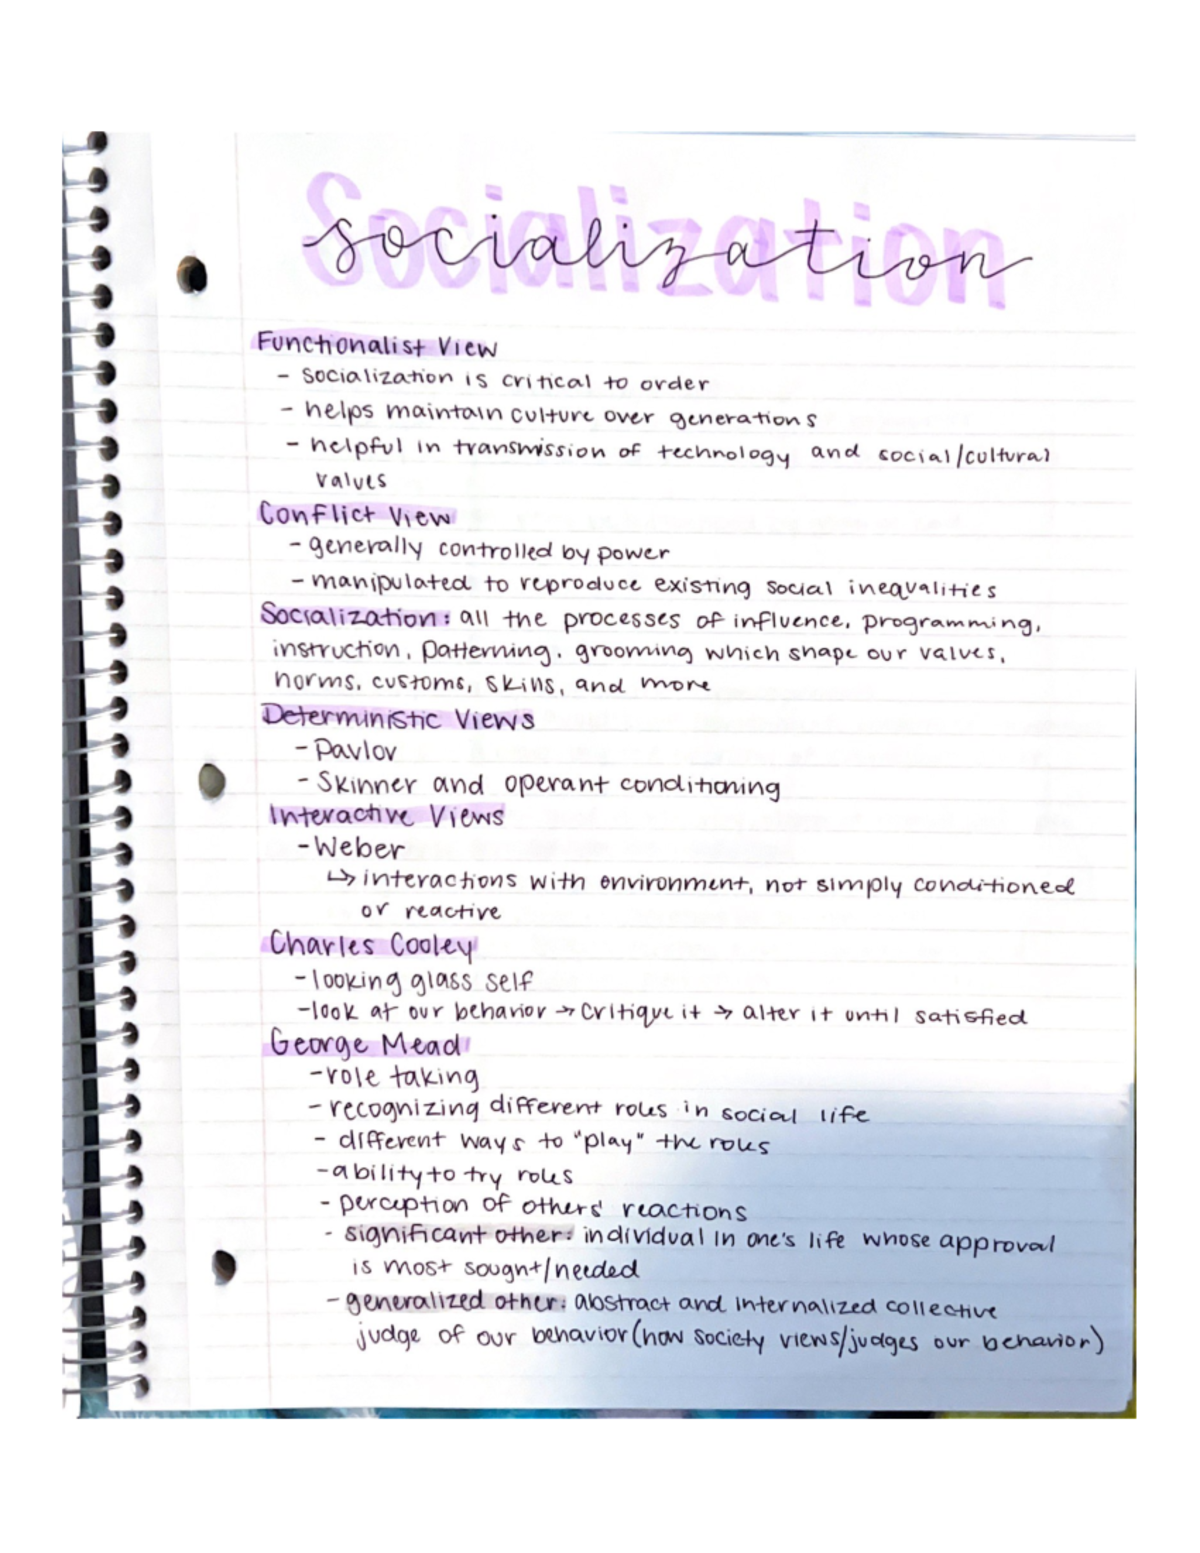 Socialization
socialization
Functionalist View
- socialization is critical to order
- helps maintain culture over generations
- helpful in transmission of technology and social/cultural
values
Conflict View
- generally controlled by power
- manipulated to reproduce existing social inequalities
Socialization: all the processes of influence, programming,
instruction, patterning, grooming which shape our values,
norms, customs, skills, and more
Deterministic Views
- Pavlov
- Skinner and operant conditioning
Interactive Views
- Weber
↳ interactions with environment, not simply conditioned
or reactive
Charles Cooley
- looking glass self
- look at our behavior → critique it → alter it until satisfied
George Mead
- role taking
- recognizing different roles in social life
- different ways to "play" the roles
- ability to try roles
- perception of others' reactions
- significant other: individual in one's life whose approval
is most sought/needed
- generalized other: abstract and internalized collective
judge of our behavior (how society views/judges our behavior)